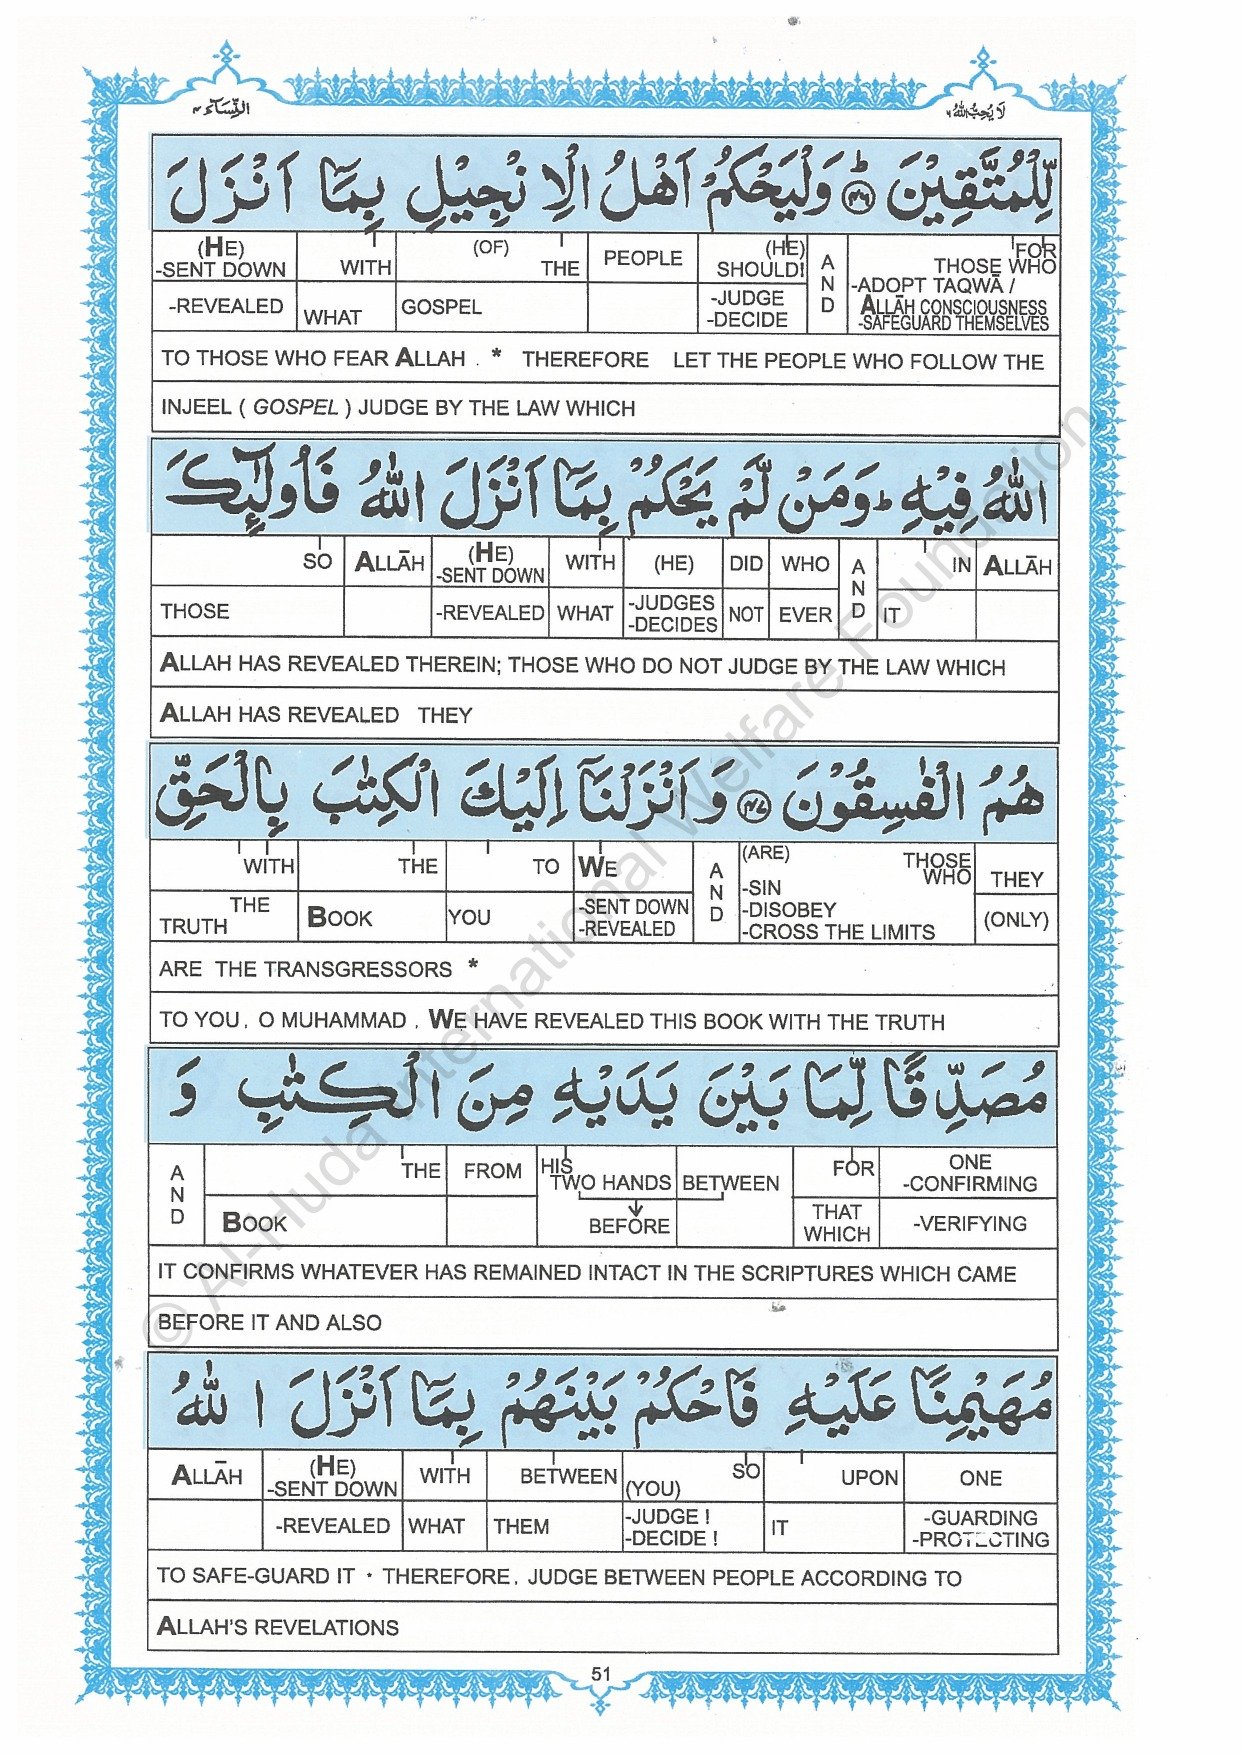 النِّسَاء ٤
لَا يُحِبُّ اللهُ ٦
لِّلْمُتَّقِيْنَ ﴿٤٦﴾ؕ وَلْيَحْكُمْ اَهْلُ الْاِنْجِيْلِ بِمَآ اَنْزَلَ
(HE) -SENT DOWN -REVEALED | WITH WHAT | (OF) THE GOSPEL | PEOPLE | (HE) SHOULD! -JUDGE -DECIDE | AND | FOR THOSE WHO -ADOPT TAQWĀ / ALLĀH CONSCIOUSNESS -SAFEGUARD THEMSELVES
TO THOSE WHO FEAR ALLAH . * THEREFORE LET THE PEOPLE WHO FOLLOW THE
INJEEL ( GOSPEL ) JUDGE BY THE LAW WHICH
اللّٰهُ فِيْهِ ؕ وَمَنْ لَّمْ يَحْكُمْ بِمَآ اَنْزَلَ اللّٰهُ فَاُولٰٓئِكَ
SO THOSE | ALLĀH | (HE) -SENT DOWN -REVEALED | WITH WHAT | (HE) -JUDGES -DECIDES | DID NOT | WHO EVER | AND | IN IT | ALLĀH
ALLAH HAS REVEALED THEREIN; THOSE WHO DO NOT JUDGE BY THE LAW WHICH
ALLAH HAS REVEALED THEY
هُمُ الْفٰسِقُوْنَ ﴿٤٧﴾ وَاَنْزَلْنَآ اِلَيْكَ الْكِتٰبَ بِالْحَقِّ
WITH THE TRUTH | THE BOOK | TO YOU | WE -SENT DOWN -REVEALED | AND | (ARE) THOSE WHO -SIN -DISOBEY -CROSS THE LIMITS | THEY (ONLY)
ARE THE TRANSGRESSORS *
TO YOU, O MUHAMMAD , WE HAVE REVEALED THIS BOOK WITH THE TRUTH
مُصَدِّقًا لِّمَا بَيْنَ يَدَيْهِ مِنَ الْكِتٰبِ وَ
AND | THE BOOK | FROM | HIS TWO HANDS BETWEEN BEFORE | FOR THAT WHICH | ONE -CONFIRMING -VERIFYING
IT CONFIRMS WHATEVER HAS REMAINED INTACT IN THE SCRIPTURES WHICH CAME
BEFORE IT AND ALSO
مُهَيْمِنًا عَلَيْهِ فَاحْكُمْ بَيْنَهُمْ بِمَآ اَنْزَلَ اللّٰهُ
ALLĀH | (HE) -SENT DOWN -REVEALED | WITH WHAT | BETWEEN THEM | SO (YOU) -JUDGE ! -DECIDE ! | UPON IT | ONE -GUARDING -PROTECTING
TO SAFE-GUARD IT · THEREFORE, JUDGE BETWEEN PEOPLE ACCORDING TO
ALLAH'S REVELATIONS
51
© Al-Huda International Welfare Foundation